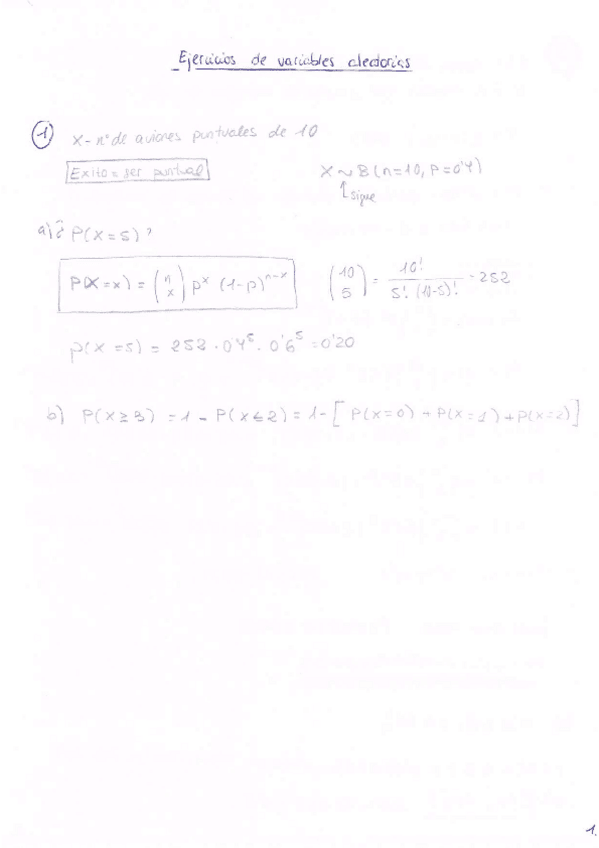 Ejercicios de variables aleatorias
1 X - nº de aviones puntuales de 10
Exito = ser puntual X ~ B (n=10, p=0'4)
sigue
a) ¿P(X=5)?
P(X=x) = (n x) p^x (1-p)^n-x (10 5) = 10! / 5! (10-5)! = 252
p(X=5) = 252 · 0'4^5 · 0'6^5 = 0'20
b) P(X≥3) = 1 - P(X≤2) = 1 - [P(X=0) + P(X=1) + P(X=2)]
1.